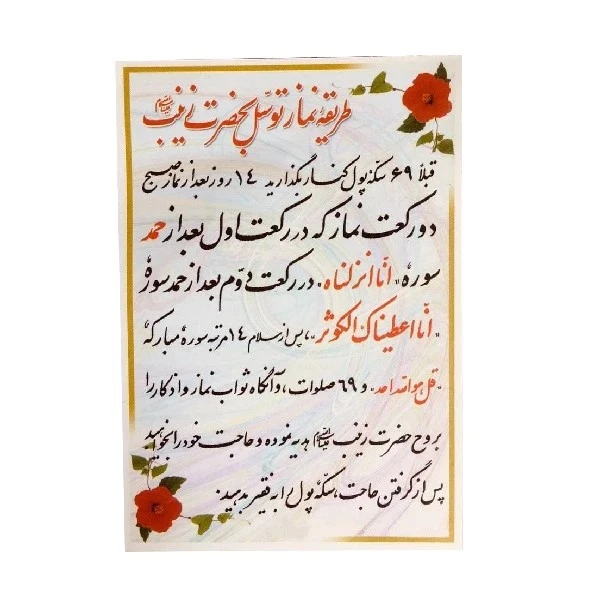 طریقهٔ نماز توسّل بحضرت زینب علیهاالسلام
قبلاً ۶۹ سکه پول کنار بگذارید ۱۴ روز بعد از نماز صبح
دو رکعت نماز که در رکعت اول بعد از حمد
سورهٔ «انا انزلناه» در رکعت دوّم بعد از حمد سورهٔ
«انّا اعطیناک الکوثر»، پس از سلام ۱۴ مرتبه سورهٔ مبارکهٔ
«قل هو الله احد» و ۶۹ صلوات، و آنگاه ثواب نماز و اذکار را
بروح حضرت زینب علیهاالسلام هدیه نموده و حاجت خود را بخواهید
پس از گرفتن حاجت، سکّه پول را به فقیر بدهید.